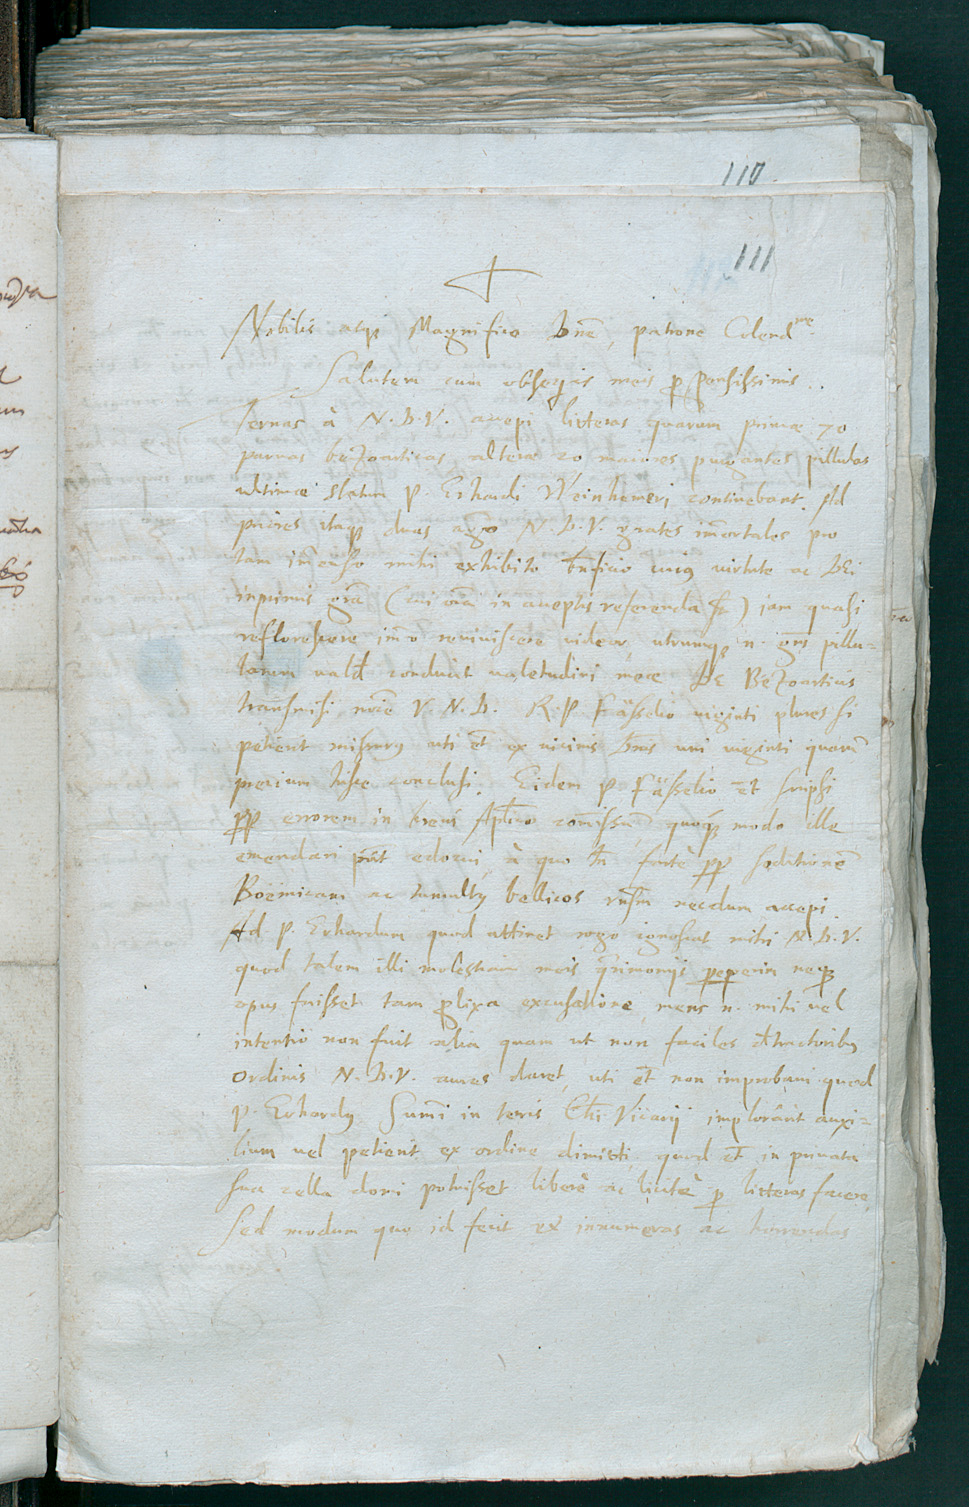 110
111
Nobilis atq̢ Magnifice Dn̄e, patrone Colendme
Salutem cum obseqijs meis ꝓpensissimis..
Ternas à N. D. V. accepi litteras quarum primae 70
paruas bezoarticas, alterae 20 maiores purgantes pillulas
ultimae statum P. Erhardi Weinhemerj continebant. Ad
priores itaq̢ duas ago N. D. V. grates im̄ortales pro
tam im̄enso mihi exhibito bn̄ficio cuig virtute ac Dei
inprimis grā (cui oīa in acceptis referenda st) jam quasi
reflorescere im̄o reuiviscere videor, utrumq̢ n. gen̄s pillu-
larum valdè conducit valetudini meae. De Bezoarticis
transmisi noīe V. N. D. R. P. Fässelio viginti plures si
petierit missurg uti et̄ ex vicinis Dn̄is uni viginti quarū
precium hisce conclusi. Eidem P. Fässelio et̄ scripsi
ꝓp errorem in breui Apl̄ico com̄issū quoq̢ modo ille
emendari pn̄t edocui à quo tn̄ fortè ꝓp seditionē
Boëmicam ac tumultg bellicos rn̄sm necdum accepi.
Ad P. Erhardum quod attinet rogo ignoscat mihi N. D. V.
quod talem illi molestiam meis qrimonijs pepererim neq̢
opus fuisset tam ꝓlixa excusatione, mens n. mihi vel
intentio non fuit alia quam ut non faciles detractoribg
Ordinis N. D. V. aures daret, uti et̄ non improbaui quod
P. Erhardg Sum̄i in terris Chr̄i Vicarij implorârit auxi-
lium vel petierit ex ordine dimitti quod et̄ in priuata
sua cella domi potuisset liberè ac licitè ꝑ litteras facere
Sed modum quo id fecit ex innumeras ac horrendas